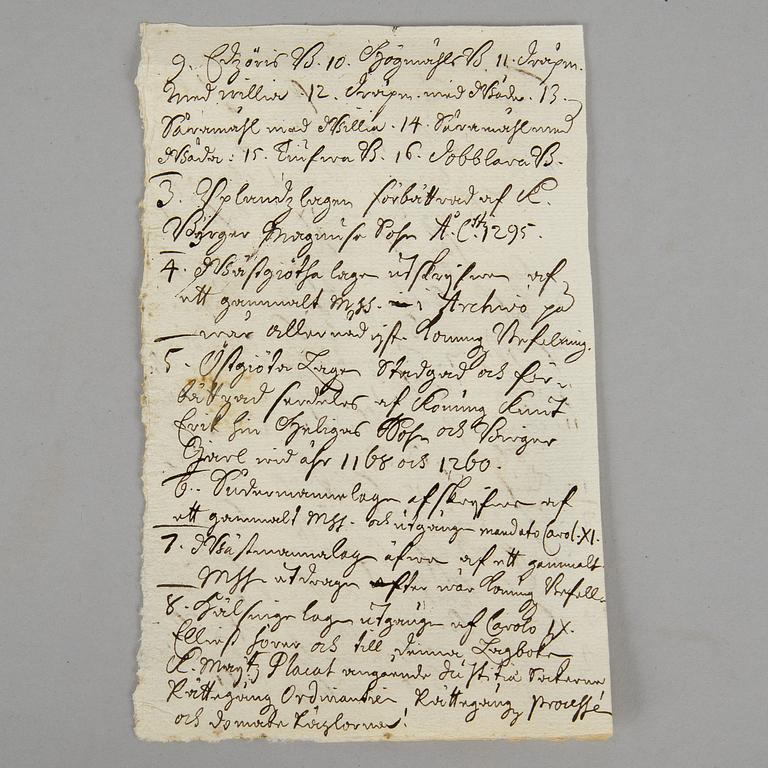 9. Edzöris B. 10. Högmåhls B. 11. Dråpm.
med willia 12. Dråpm. med Wåda. 13.
Såramåhl mad Willia. 14. Såramåhl med
Wåda: 15. Tiufwa B. 16. Jobblara B.
3. Uplandz lagen förbättrad af K.
Börger Magnuse Sohn A:o C:sti 1295.
4. Wästgiötha lagen utskrifwen af
ett gammalt Mss. i Archivo på
wår allernådigste Konung befalning.
5. Östgiöta Lagen Stadgad och för-
bättrad serdeles af Konung Knut
Erik hin Heliges Sohn och Birger
Jarl wid åhr 1168 och 1260.
6. Sudermannelagen afskrifwen af
ett gammalt Mss. och utgången mandato Carol. XI.
7. Wästmannalag äfwen af ett gammalt
Mss utdragen efter wår Konung befall:
8. Hälsinge lagen utgången af Carolo IX.
Elliest hörer och till denna Lagboken
K. May:tz Placat angående Justitiæ Sakerne
Rättegång Ordinantier Rättegångz processé
och domare Räglorna!